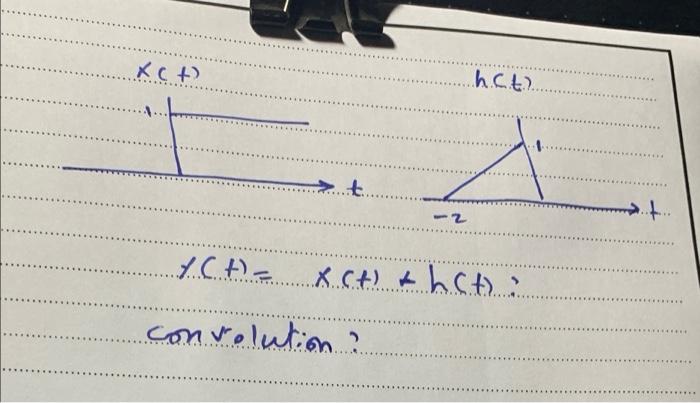 x(t)
h(t)
1
1
t
-2
t
y(t) = x(t) * h(t) ?
convolution ?